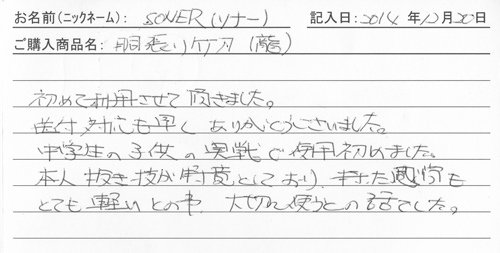 お名前(ニックネーム): SONER(ソナー) 記入日:2014年12月20日
ご購入商品名: 胴張り竹刀(龍)
初めて利用させて頂きました。
送付、対応も早くありがとうございました。
中学生の子供の実戦で使用初めました。
本人抜き技が得意としており、持った感覚も
とても軽いとの事、大切に使うとの話でした。